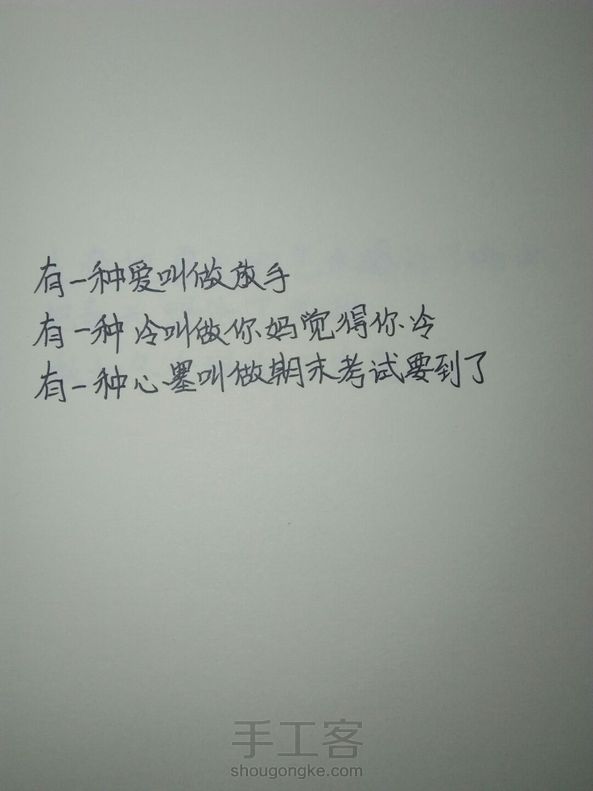 有一种爱叫做放手
有一种冷叫做你妈觉得你冷
有一种心塞叫做期末考试要到了
手工客
shougongke.com